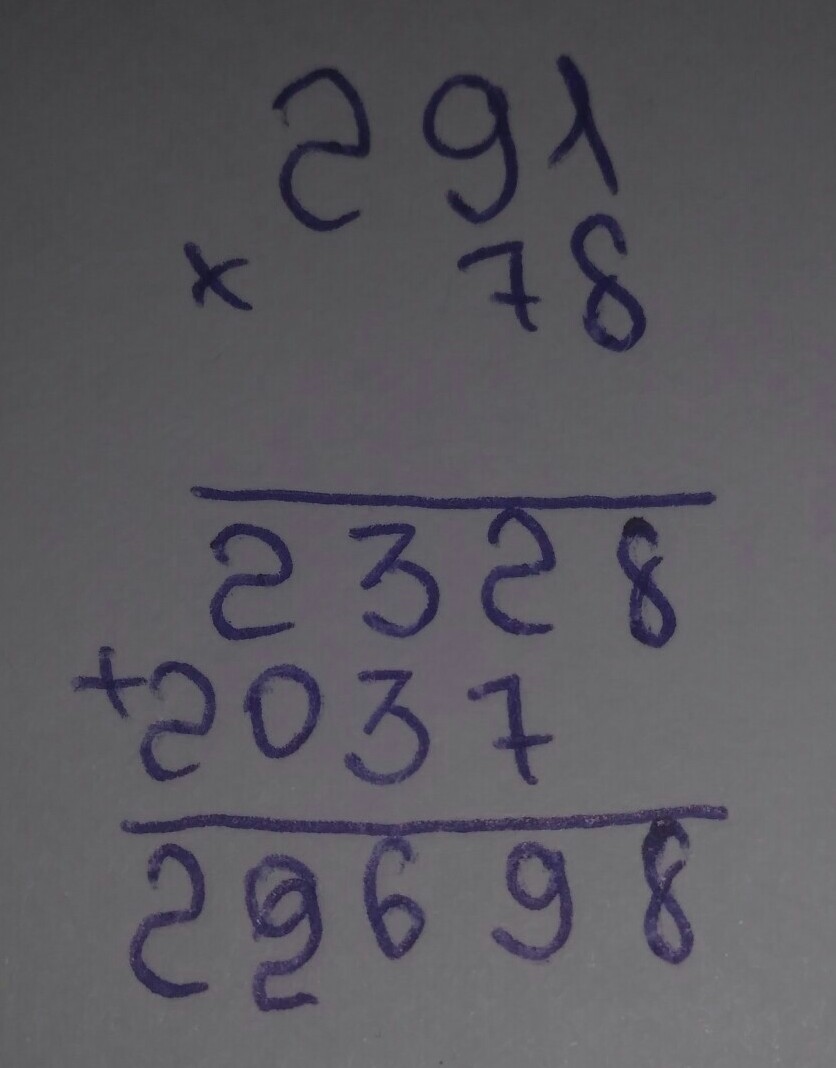 291
x 78
2328
+2037